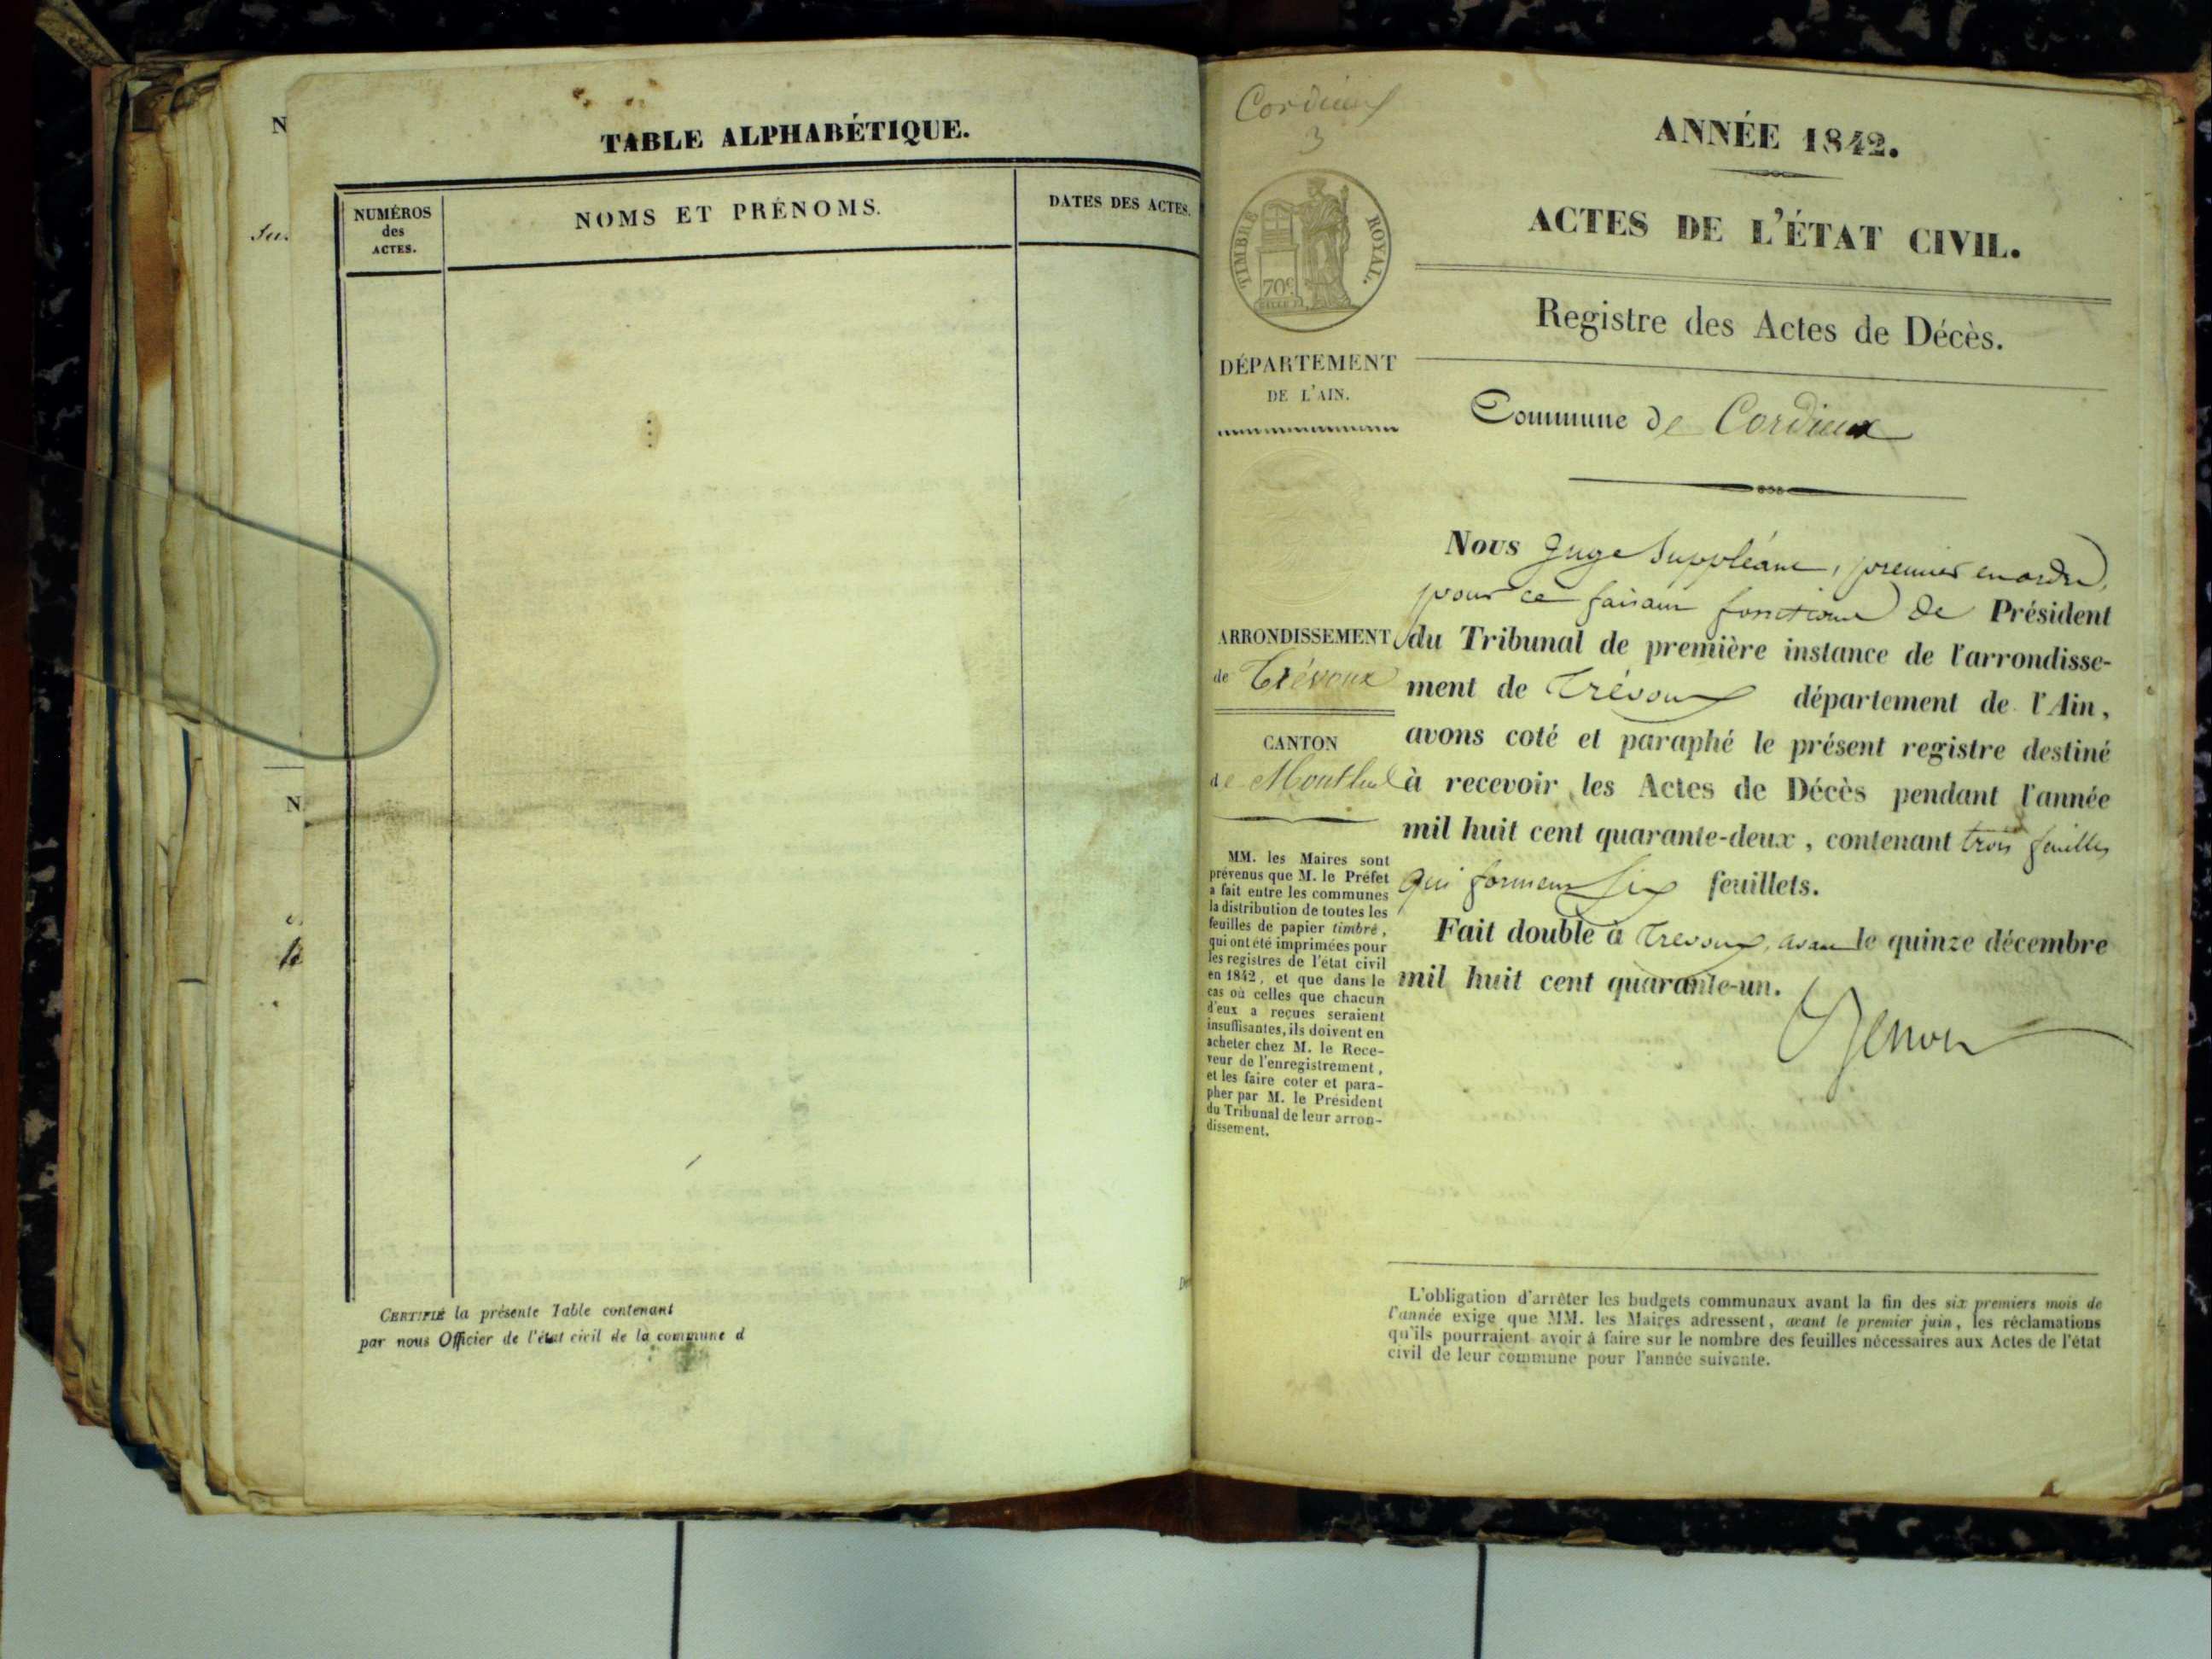 TABLE ALPHABÉTIQUE.
NUMÉROS
des
ACTES.
NOMS ET PRÉNOMS.
DATES DES ACTES.
CERTIFIÉ la présente Table contenant
par nous Officier de l'état civil de la commune d
Cordieux
3
TIMBRE ROYAL.
70c
DÉPARTEMENT
DE L'AIN.
ARRONDISSEMENT
de Trévoux
CANTON
de Montluel
MM. les Maires sont
prévenus que M. le Préfet
a fait entre les communes
la distribution de toutes les
feuilles de papier timbré,
qui ont été imprimées pour
les registres de l'état civil
en 1842, et que dans le
cas où celles que chacun
d'eux a reçues seraient
insuffisantes, ils doivent en
acheter chez M. le Rece-
veur de l'enregistrement,
et les faire coter et para-
pher par M. le Président
du Tribunal de leur arron-
dissement.
ANNÉE 1842.
ACTES DE L'ÉTAT CIVIL.
Registre des Actes de Décès.
Commune de Cordieux
Nous Juge Suppléant, premier en ordre,
pour ce faisant fonctions de Président
du Tribunal de première instance de l'arrondisse-
ment de Trévoux département de l'Ain,
avons coté et paraphé le présent registre destiné
à recevoir les Actes de Décès pendant l'année
mil huit cent quarante-deux, contenant trois feuilles
qui forment six feuillets.
Fait double à Trevoux, avant le quinze décembre
mil huit cent quarante-un.
L'obligation d'arrêter les budgets communaux avant la fin des six premiers mois de
l'année exige que MM. les Maires adressent, avant le premier juin, les réclamations
qu'ils pourraient avoir à faire sur le nombre des feuilles nécessaires aux Actes de l'état
civil de leur commune pour l'année suivante.